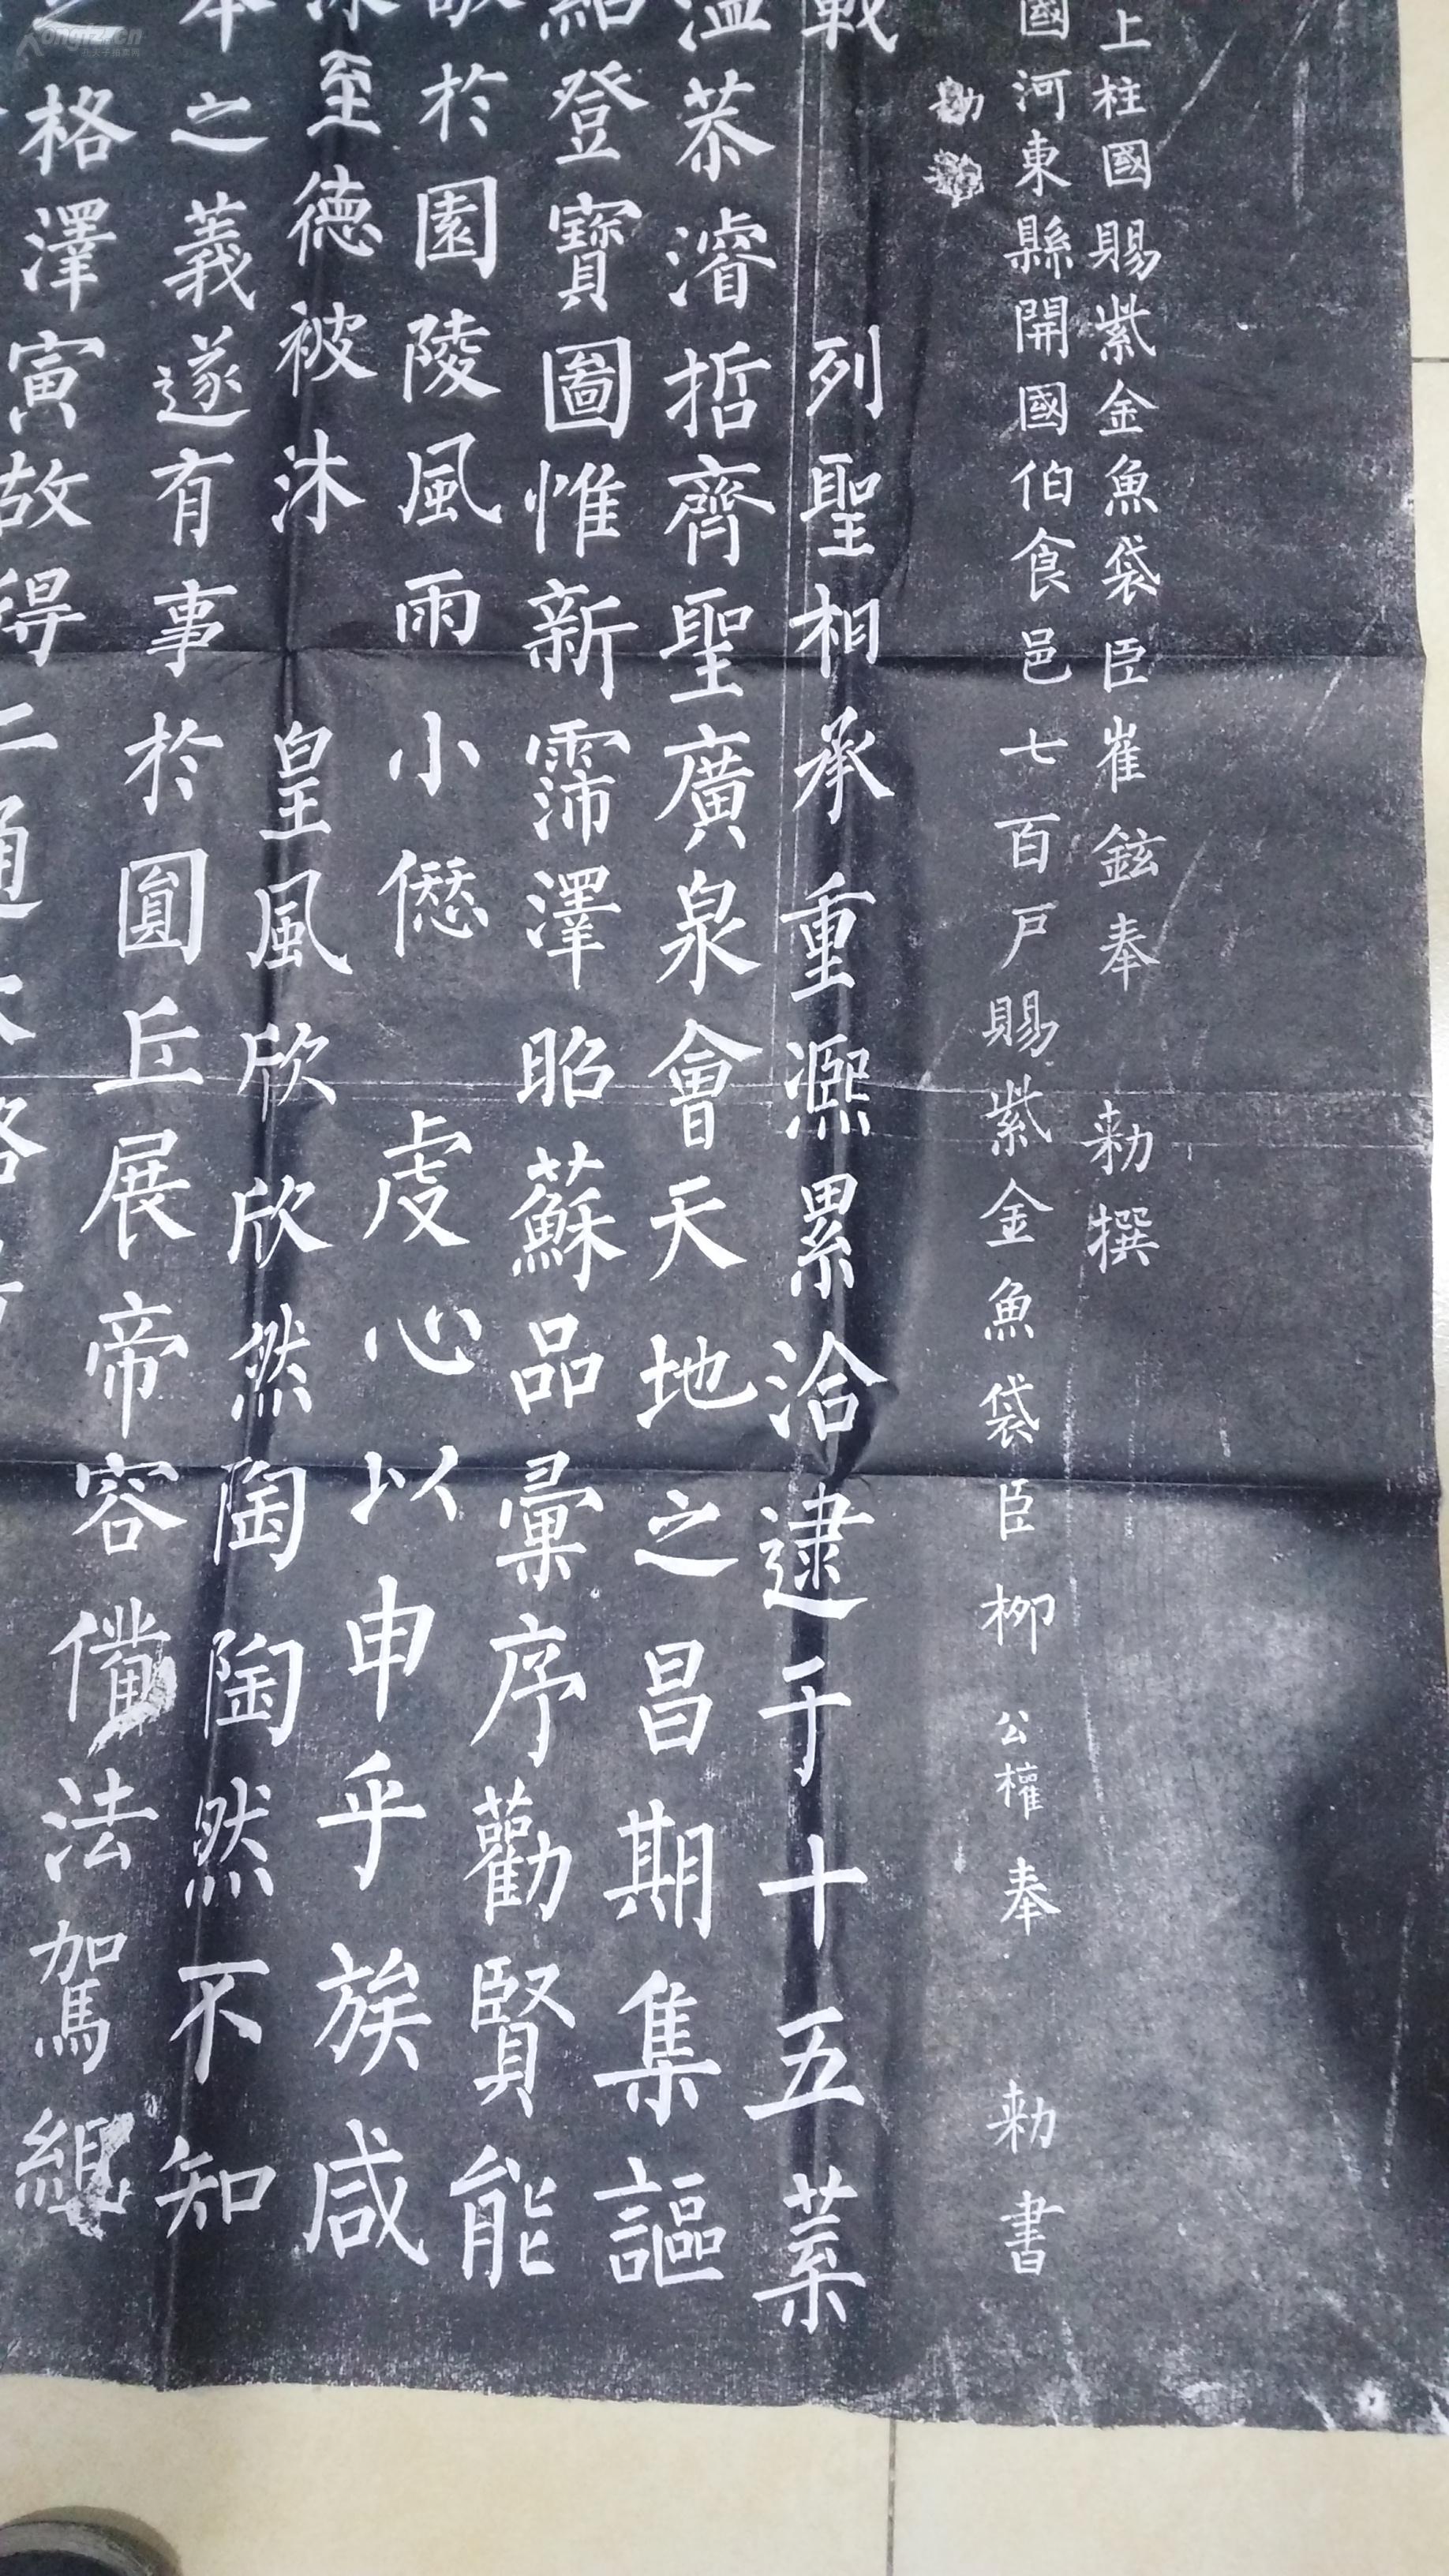 上柱國賜紫金魚袋臣崔鉉奉 勑撰
國河東縣開國伯食邑七百戶賜紫金魚袋臣柳公權奉 勑書
列聖相承重熈累洽逮于十五葉
溫恭濬哲齊聖廣泉會天地之昌期集謳
紹登寶圖惟新霈澤昭蘇品彙序勸賢能
於園陵風雨小僽虔心以申乎族咸
至德被沐 皇風欣欣然陶陶然不知
本之義遂有事於圓丘展帝容備法駕組
格澤寅故得
二通